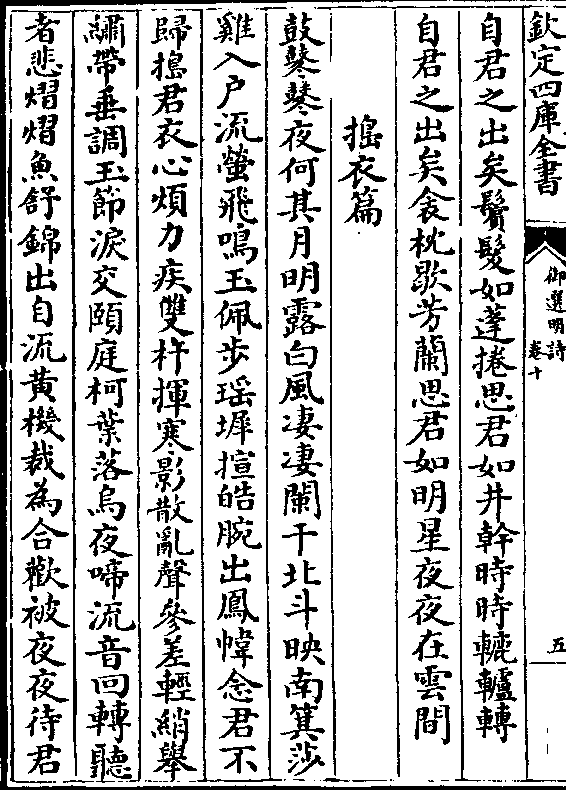 欽定四庫全書
御選明詩
卷十
五
自君之出矣鬢髮如蓬捲思君如井幹時時轆轤轉
自君之出矣衾枕歇芳蘭思君如明星夜夜在雲間
搗衣篇
鼓鼕鼕夜何其月明露白風凄凄闌干北斗映南箕莎
雞入户流螢飛鳴玉佩步瑶墀揎皓腕出鳳幃念君不
歸搗君衣心煩力疾雙杵揮寒影散亂聲參差輕綃舉
繡帶垂調玉節淚交頤庭柯葉落烏夜啼流音回轉聽
者悲熠熠魚舒錦出自流黄機裁為合歡被夜夜待君